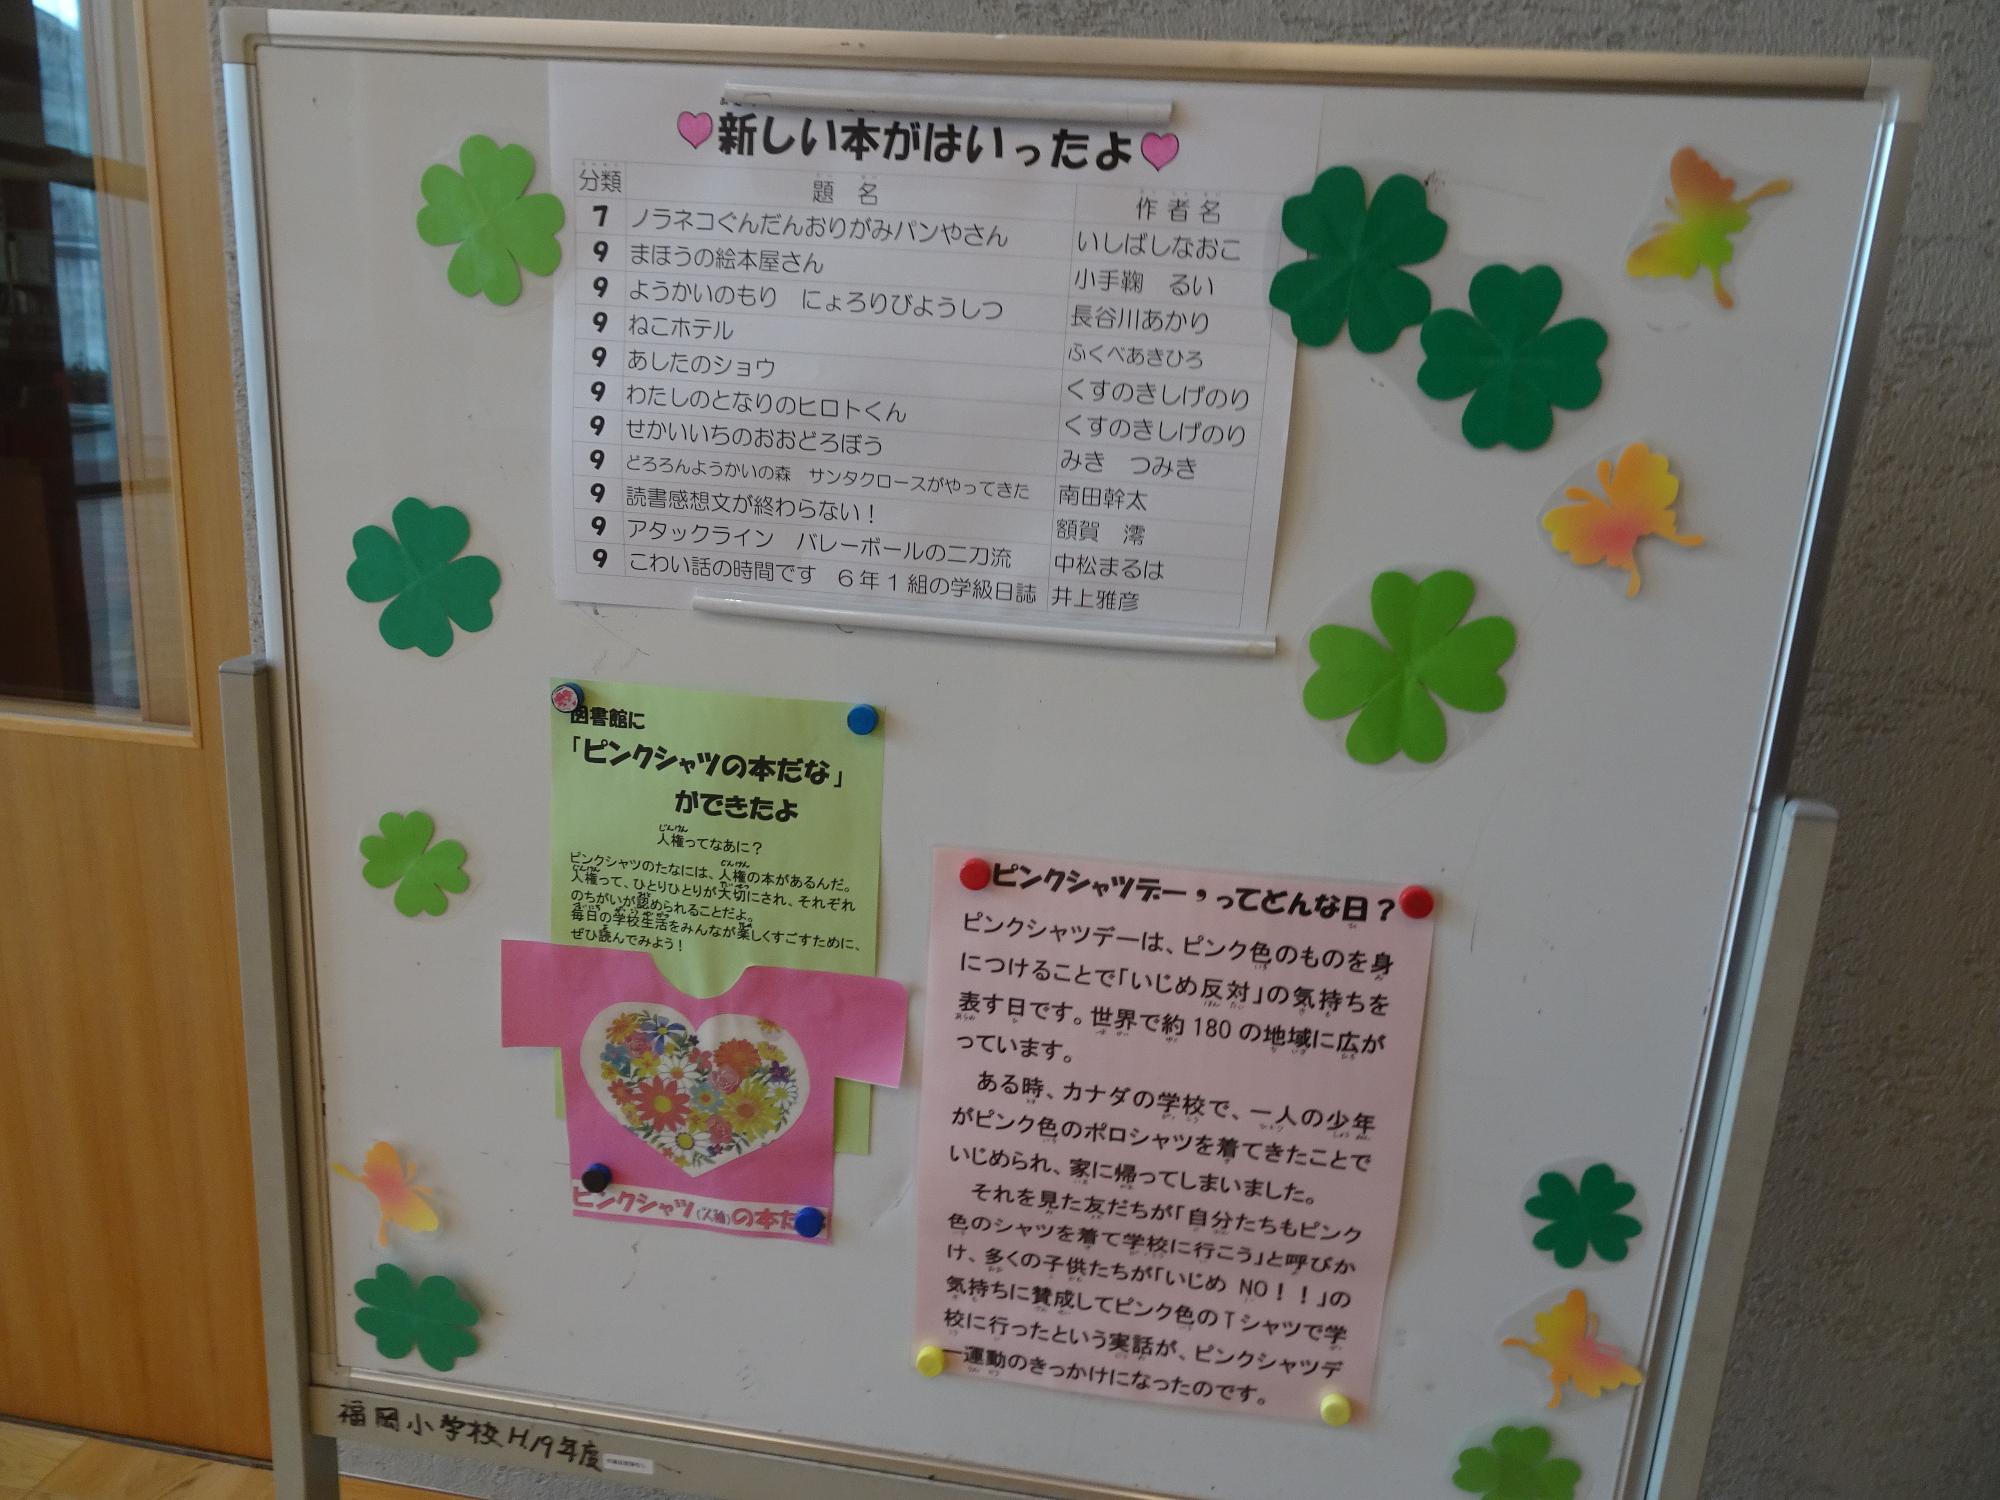 新しい本がはいったよ
分類 題名 作者名
7 ノラネコぐんだんおりがみパンやさん いしばしなおこ
9 まほうの絵本屋さん 小手鞠 るい
9 ようかいのもり にょろりびようしつ 長谷川あかり
9 ねこホテル ふくべあきひろ
9 あしたのショウ くすのきしげのり
9 わたしのとなりのヒロトくん くすのきしげのり
9 せかいいちのおおどろぼう みき つみき
9 どろろんようかいの森 サンタクロースがやってきた 南田幹太
9 読書感想文が終わらない! 額賀 澪
9 アタックライン バレーボールの二刀流 中松まるは
9 こわい話の時間です 6年1組の学級日誌 井上雅彦
図書館に
「ピンクシャツの本だな」
ができたよ
じんけん
人権ってなあに?
ピンクシャツのたなには、人権の本があるんだ。
人権って、ひとりひとりが大切にされ、それぞれ
のちがいが認められることだよ。
毎日の学校生活をみんなが楽しくすごすために、
ぜひ読んでみよう!
ピンクシャツ(人権)の本だ
ピンクシャツデー,ってどんな日?
ピンクシャツデーは、ピンク色のものを身
につけることで「いじめ反対」の気持ちを
表す日です。世界で約180の地域に広が
っています。
ある時、カナダの学校で、一人の少年
がピンク色のポロシャツを着てきたことで
いじめられ、家に帰ってしまいました。
それを見た友だちが「自分たちもピンク
色のシャツを着て学校に行こう」と呼びか
け、多くの子供たちが「いじめ NO!!」の
気持ちに賛成してピンク色のTシャツで学
校に行ったという実話が、ピンクシャツデ
ー運動のきっかけになったのです。
福岡小学校H.19年度